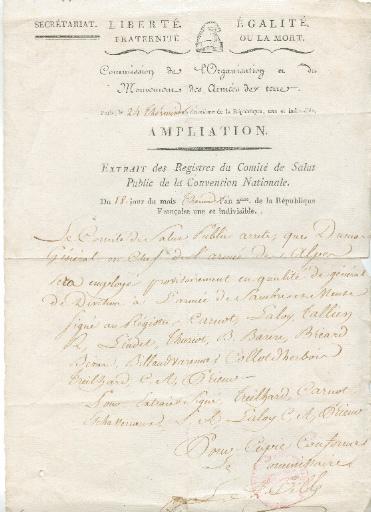 SECRÉTARIAT.
LIBERTÉ. ÉGALITÉ.
FRATERNITÉ OU LA MORT.
Commission de l'Organisation et du
Mouvement des Armées de terre
Paris, le 24 thermidor deuxième de la République, une et indivisible,
AMPLIATION.
EXTRAIT des Registres du Comité de Salut
Public de la Convention Nationale.
Du 18 jour du mois Thermidor l'an 2ème. de la République
Française une et indivisible.
Le Comité de Salut Public arrête, que Dumas
Général en Chef de l'armée des Alpes
sera employé provisoirement en qualité de général
de Division à l'armée de Sambre et Meuse
Signé au Registre, Carnot, Laloy, Tallien
R. Lindet, Thuriot, B. Barère, Bréard
Billaud Varenne, Collot d'herbois
Treilhard C. A. Prieur
Pour Extrait Signé Treilhard, Carnot
Eschasseriaux, P. A. Laloy C. A. Prieur
Pour Copie Conforme
Le Commissaire